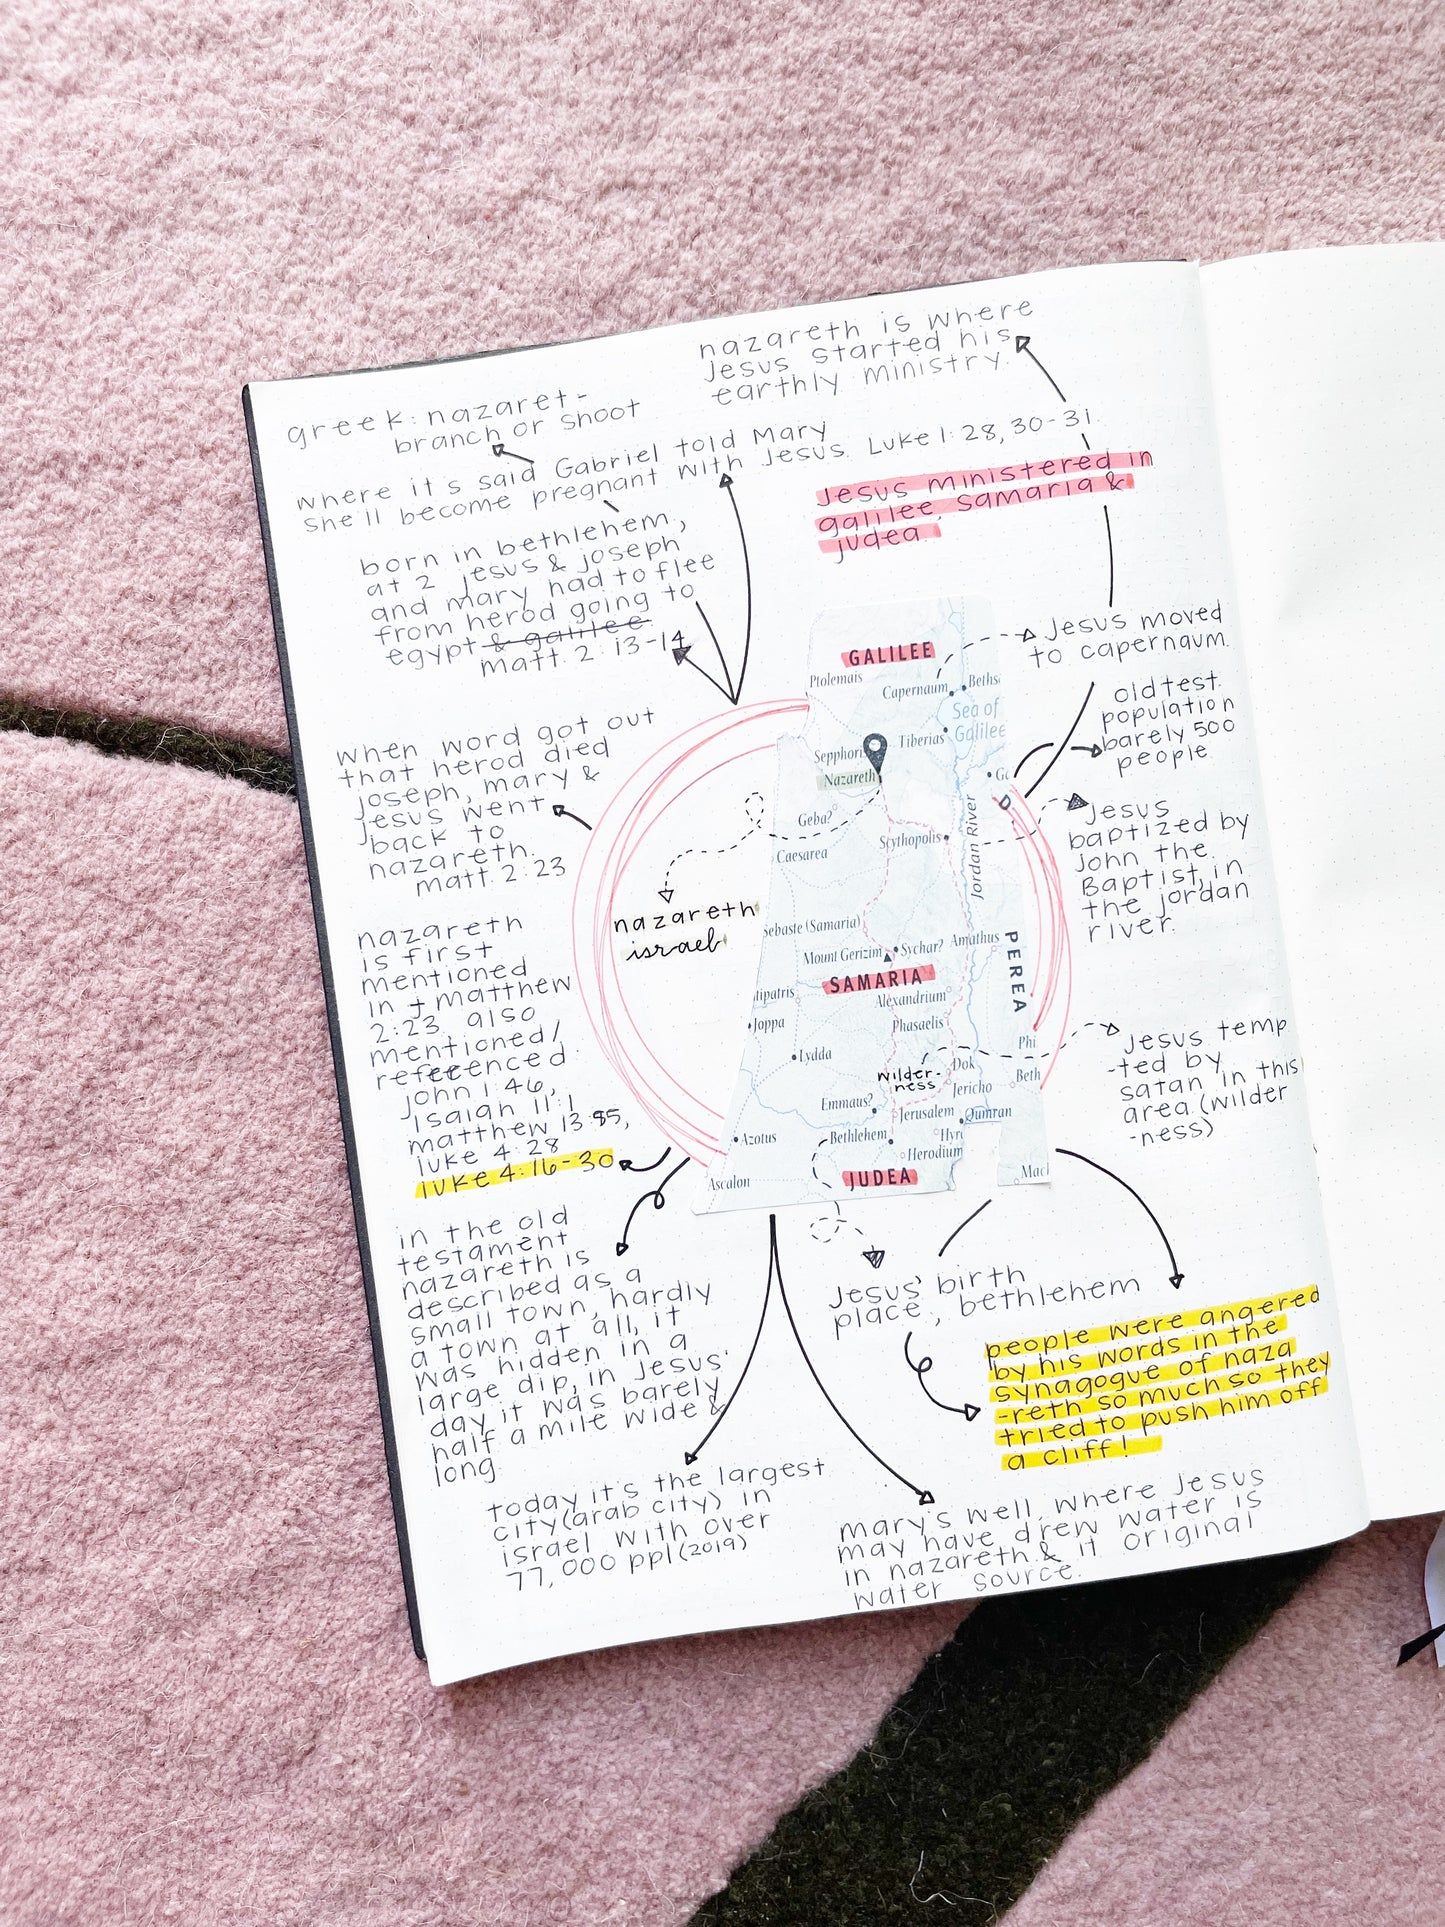 nazareth is where
Jesus started his
earthly ministry.
greek: nazaret-
branch or shoot
where it's said Gabriel told Mary
she'll become pregnant with Jesus. Luke 1:28, 30-31.
Jesus ministered in
galilee, samaria &
judea.
born in bethlehem,
at 2 jesus & joseph
and mary had to flee
from herod going to
egypt & galilee
matt. 2 13-14
GALILEE
Ptolemais
Capernaum
Beths
Sea of
Galilee
Tiberias
Sepphori
Nazareth
Geba?
Caesarea
Scythopolis
Jordan River
Sebaste (Samaria)
Mount Gerizim
Sychar?
Amathus
PEREA
SAMARIA
tipatris
Alexandrium
Joppa
Phasaelis
Lydda
Phi
wilder-
ness
Dok
Beth
Jericho
Emmaus?
Jerusalem
Qumran
Azotus
Bethlehem
Hyr
Herodium
JUDEA
Ascalon
Mach
Jesus moved
to capernaum.
old test.
population
barely 500
people
Jesus
baptized by
John the
Baptist, in
the jordan
river.
when word got out
that herod died
joseph, mary &
jesus went
back to
nazareth.
matt. 2:23
nazareth
israel
nazareth
is first
mentioned
in matthew
2:23. also
mentioned/
referenced:
john 1:46,
Isaiah 11:1
matthew 13:55,
luke 4:28
luke 4:16-30
Jesus temp
-ted by
satan in this
area (wilder
-ness)
in the old
testament
nazareth is
described as a
small town, hardly
a town at all, it
was hidden in a
large dip, in jesus'
day it was barely
half a mile wide &
long.
Jesus' birth
place, bethlehem
people were angered
by his words in the
synagogue of naza
-reth so much so they
tried to push him off
a cliff!
today it's the largest
city (arab city) in
israel with over
77,000 ppl (2019)
mary's well, where Jesus
may have drew water is
in nazareth & it original
water source.